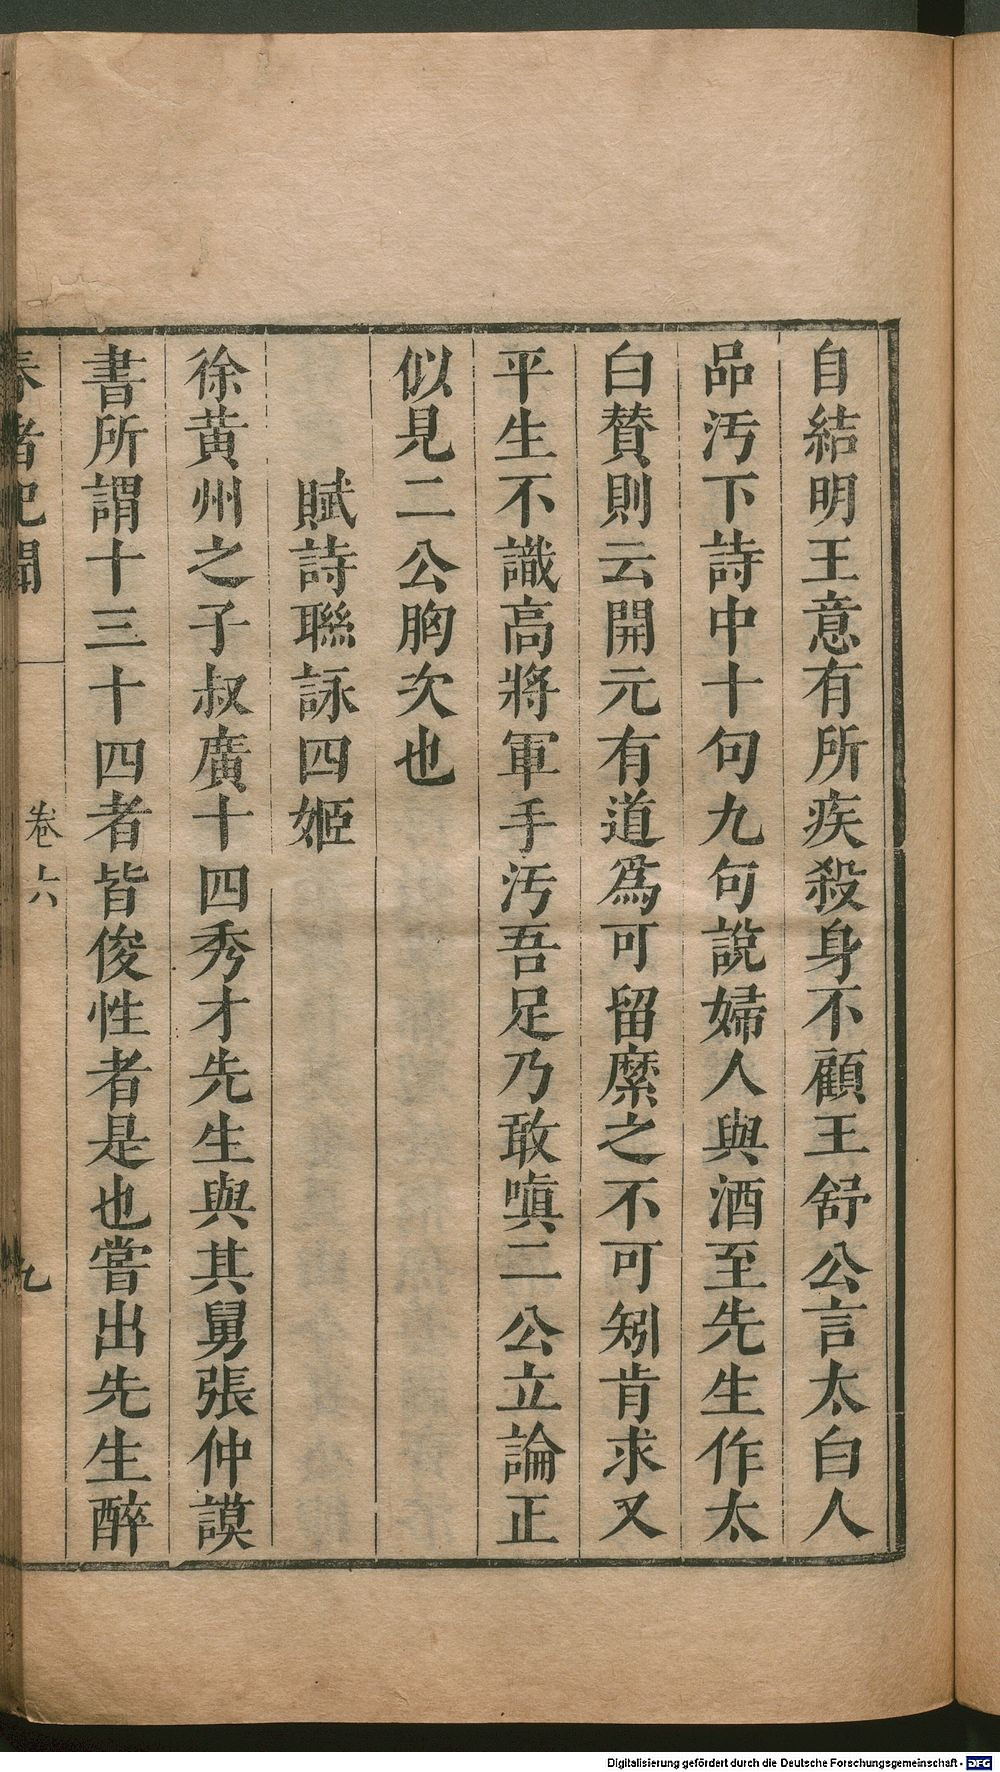 自結明王意有所疾殺身不顧王舒公言太白人
品污下詩中十句九句說婦人與酒至先生作太
白賛則云開元有道爲可留縻之不可矧肯求又
平生不識高將軍手污吾足乃敢嗔二公立論正
似見二公胸次也
賦詩聯詠四姬
徐黄州之子叔廣十四秀才先生與其舅張仲謨
書所謂十三十四者皆俊性者是也嘗出先生醉
春渚紀聞
卷六
九
Digitalisierung gefördert durch die Deutsche Forschungsgemeinschaft - DFG